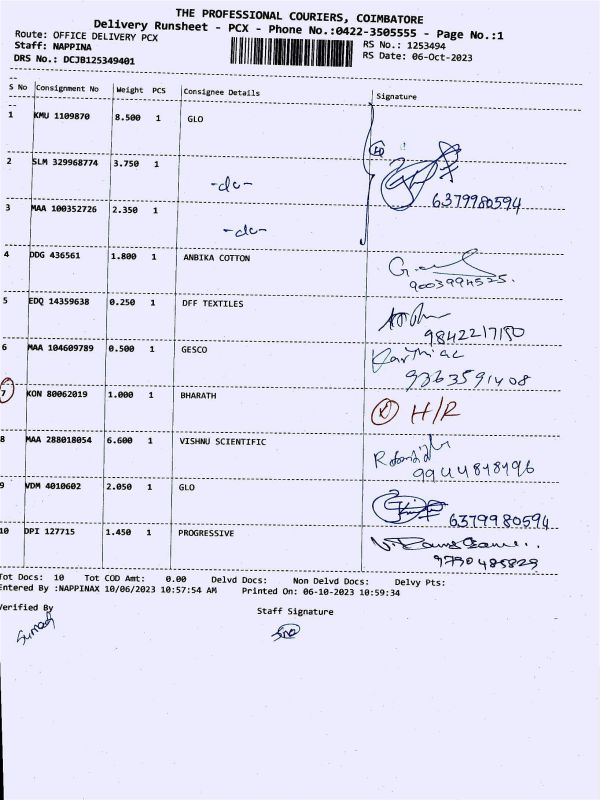 THE PROFESSIONAL COURIERS, COIMBATORE
Delivery Runsheet - PCX - Phone No.:0422-3505555 - Page No.:1
Route: OFFICE DELIVERY PCX
RS No.: 1253494
Staff: NAPPINA
RS Date: 06-Oct-2023
DRS No.: DCJB125349401
S No Consignment No Weight PCS Consignee Details Signature
1 KMU 1109870 8.500 1 GLO
2 SLM 329968774 3.750 1 -do-
6379980594
3 MAA 100352726 2.350 1 -do-
4 DDG 436561 1.800 1 ANBIKA COTTON
9003994525.
5 EDQ 14359638 0.250 1 DFF TEXTILES
9842217180
6 MAA 104609789 0.500 1 GESCO Karthiac
9363591408
7 KON 80062019 1.000 1 BHARATH H/R
8 MAA 288018054 6.600 1 VISHNU SCIENTIFIC
9944818496
9 VDM 4010602 2.050 1 GLO
6379980594
10 DPI 127715 1.450 1 PROGRESSIVE
9790485829
Tot Docs: 10 Tot COD Amt: 0.00 Delvd Docs: Non Delvd Docs: Delvy Pts:
Entered By :NAPPINAX 10/06/2023 10:57:54 AM Printed On: 06-10-2023 10:59:34
Verified By Staff Signature